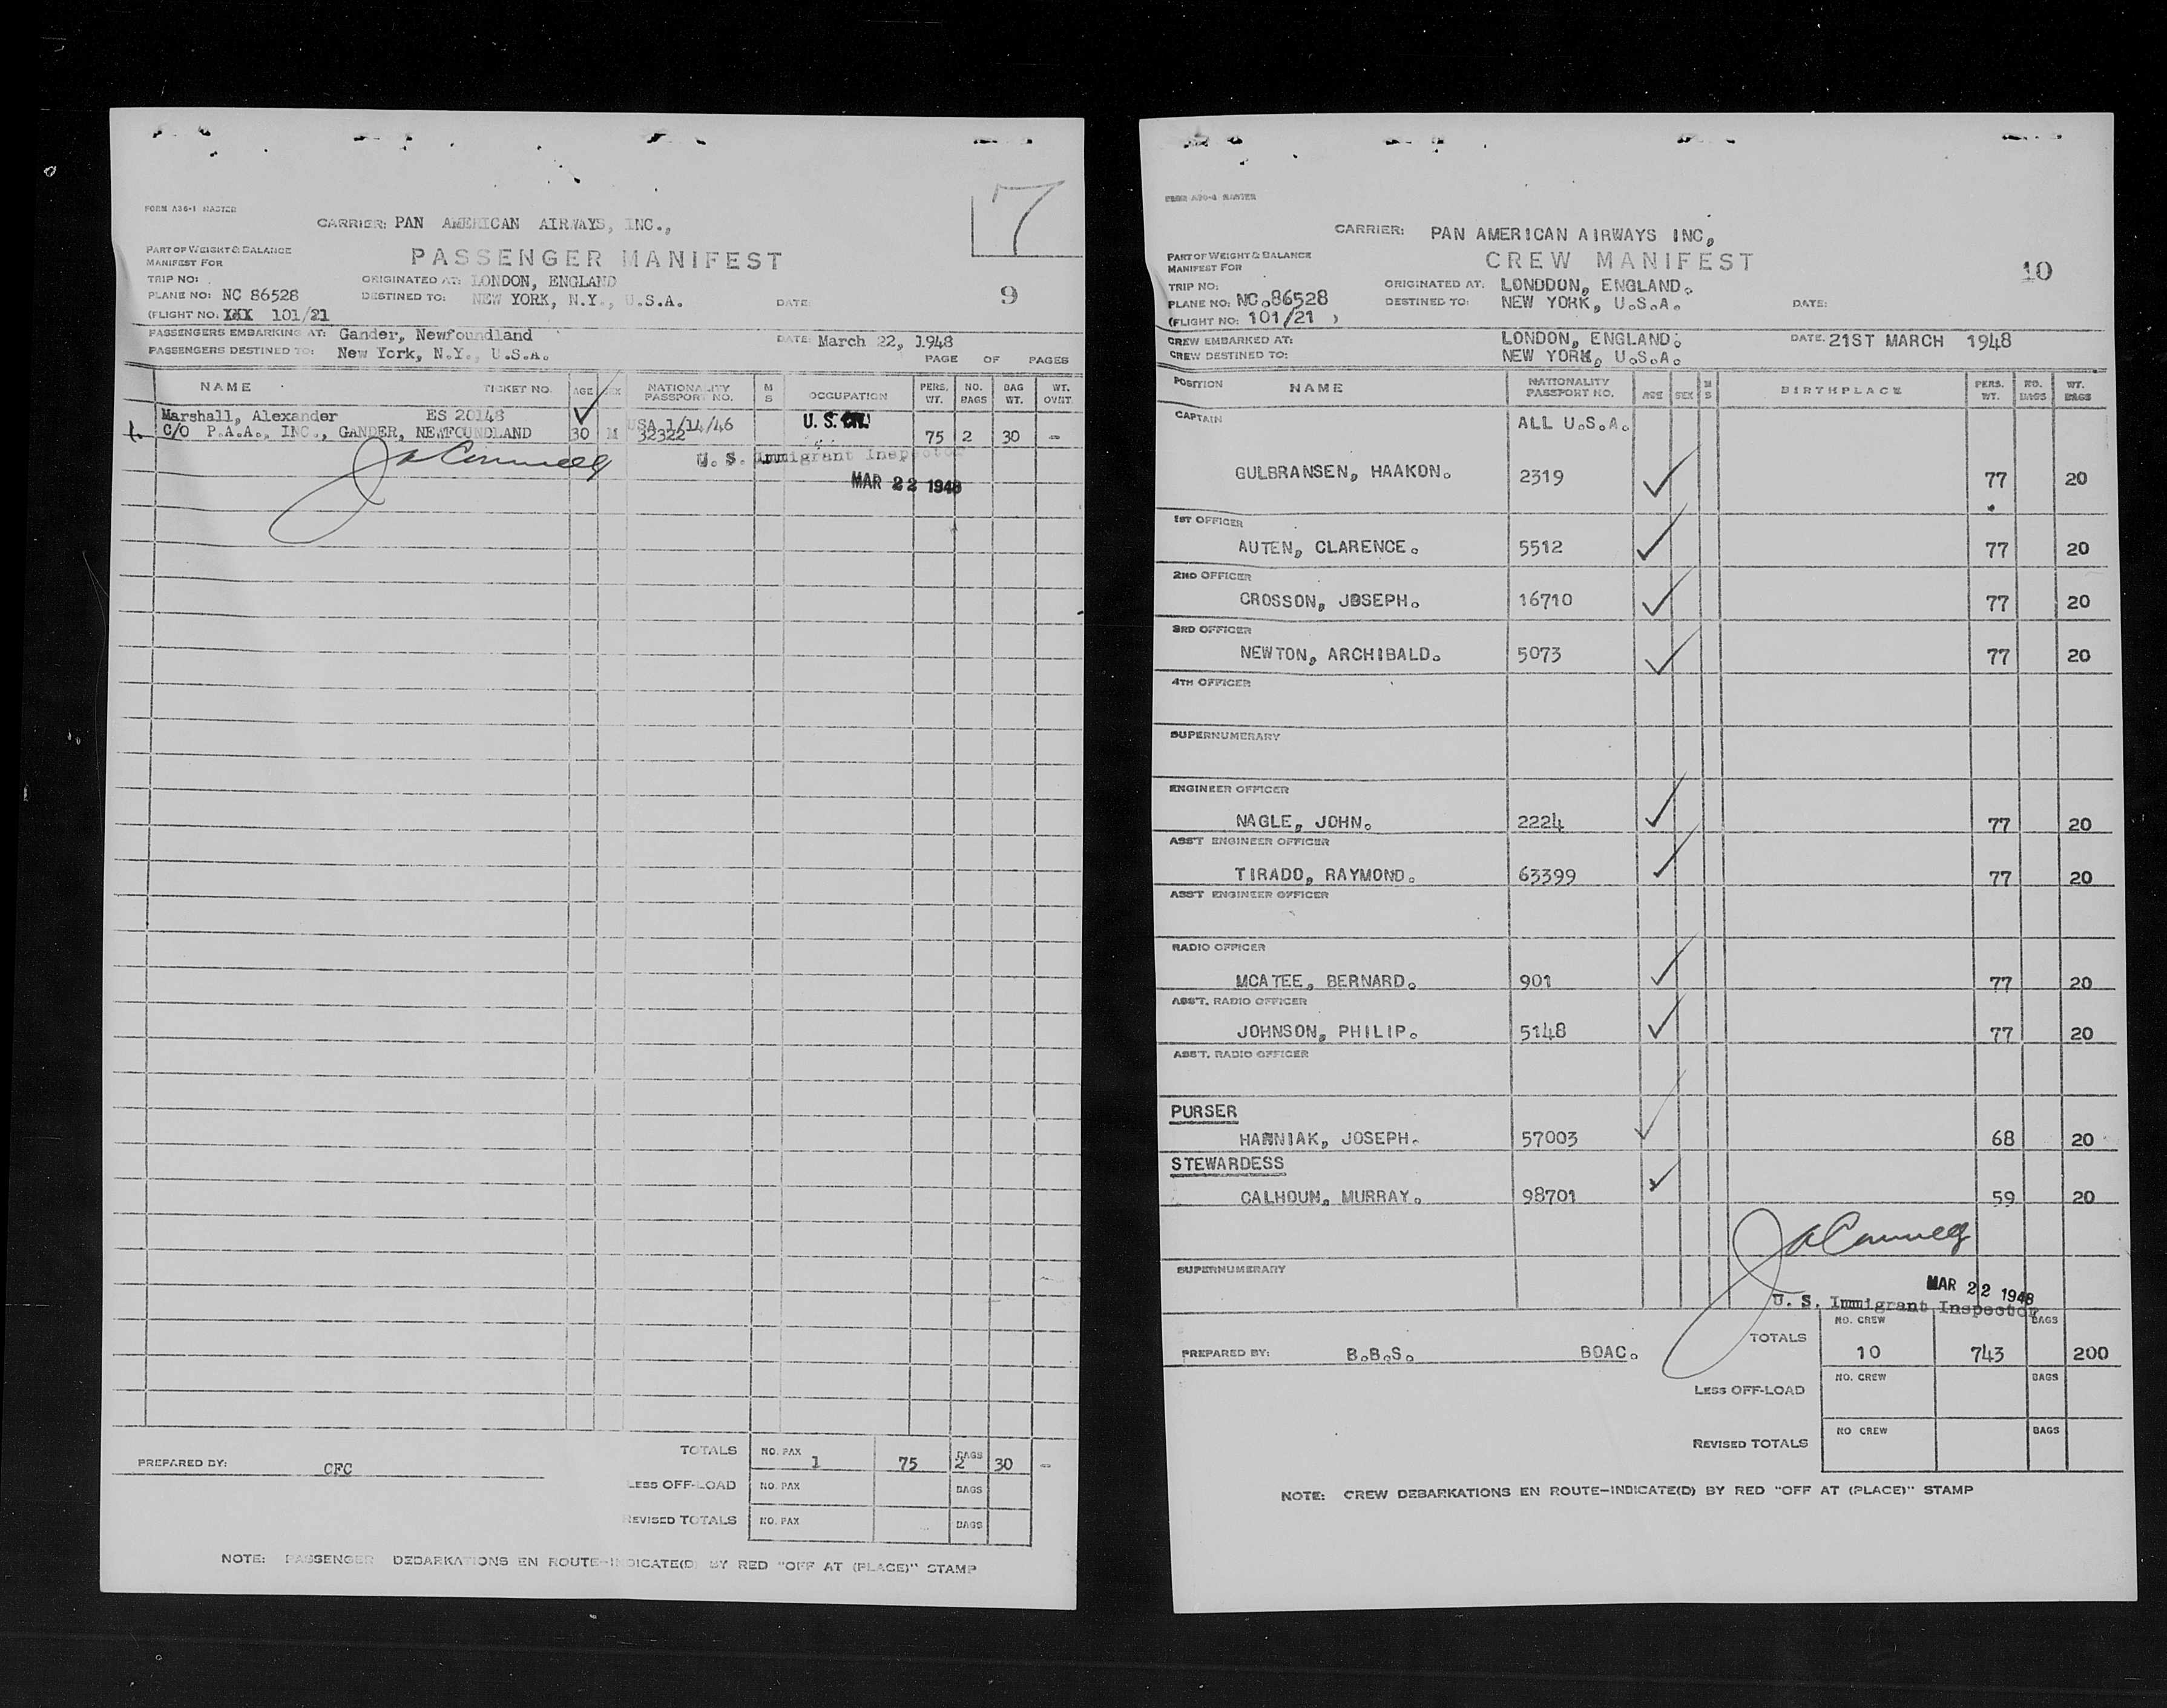 7
FORM A36-1 MASTER
CARRIER: PAN AMERICAN AIRWAYS, INC.,
PART OF WEIGHT & BALANCE
MANIFEST FOR
PASSENGER MANIFEST
TRIP NO:
ORIGINATED AT: LONDON, ENGLAND
PLANE NO: NC 86528
DESTINED TO: NEW YORK, N.Y., U.S.A.
DATE:
9
(FLIGHT NO: XXX 101/21
PASSENGERS EMBARKING AT: Gander, Newfoundland
DATE: March 22, 1948
PASSENGERS DESTINED TO: New York, N.Y., U.S.A.
PAGE OF PAGES
NAME TICKET NO. AGE SEX NATIONALITY PASSPORT NO. M S OCCUPATION PERS. WT. NO. BAGS BAG WT. WT. OVNT.
Marshall, Alexander ES 20148 USA 1/14/46 U. S. CIT.
1. C/O P.A.A., INC., GANDER, NEWFOUNDLAND 30 M 32322 75 2 30 --
U. S. Immigrant Inspector
MAR 22 1948
TOTALS NO. PAX 1 75 BAGS 2 30 --
PREPARED BY: CFC
LESS OFF-LOAD NO. PAX BAGS
REVISED TOTALS NO. PAX BAGS
NOTE: PASSENGER DEBARKATIONS EN ROUTE-INDICATE(D) BY RED "OFF AT (PLACE)" STAMP
FORM A36-4 MASTER
CARRIER: PAN AMERICAN AIRWAYS INC,
PART OF WEIGHT & BALANCE
MANIFEST FOR
CREW MANIFEST
10
TRIP NO:
ORIGINATED AT: LONDDON, ENGLAND.
PLANE NO: NC.86528
DESTINED TO: NEW YORK, U.S.A.
DATE:
(FLIGHT NO: 101/21 )
CREW EMBARKED AT: LONDON, ENGLAND:
DATE. 21ST MARCH 1948
CREW DESTINED TO: NEW YORK, U.S.A.
POSITION NAME NATIONALITY PASSPORT NO. AGE SEX M S BIRTHPLACE PERS. WT. NO. BAGS WT. BAGS
CAPTAIN ALL U.S.A.
GULBRANSEN, HAAKON. 2319 77 20
1ST OFFICER
AUTEN, CLARENCE. 5512 77 20
2ND OFFICER
CROSSON, JOSEPH. 16710 77 20
3RD OFFICER
NEWTON, ARCHIBALD. 5073 77 20
4TH OFFICER
SUPERNUMERARY
ENGINEER OFFICER
NAGLE, JOHN. 2224 77 20
ASS'T ENGINEER OFFICER
TIRADO, RAYMOND. 63399 77 20
ASS'T ENGINEER OFFICER
RADIO OFFICER
MCATEE, BERNARD. 901 77 20
ASS'T. RADIO OFFICER
JOHNSON, PHILIP. 5148 77 20
ASS'T. RADIO OFFICER
PURSER
HANNIAK, JOSEPH. 57003 68 20
STEWARDESS
CALHOUN, MURRAY. 98701 59 20
SUPERNUMERARY
MAR 22 1948
U. S. Immigrant Inspector
TOTALS NO. CREW 10 743 BAGS 200
PREPARED BY: B.B.S. BOAC.
LESS OFF-LOAD NO. CREW BAGS
REVISED TOTALS NO CREW BAGS
NOTE: CREW DEBARKATIONS EN ROUTE-INDICATE(D) BY RED "OFF AT (PLACE)" STAMP